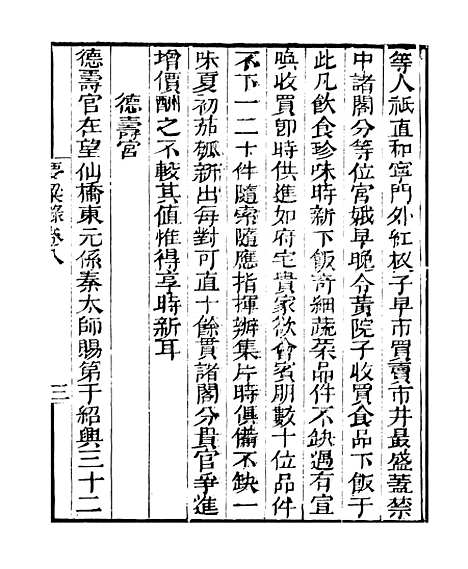 等人祇直和寧門外紅杈子早市買賣市井最盛蓋禁
中諸閣分等位宮娥早晚令黃院子收買食品下飯于
此凡飲食珍味時新下飯奇細蔬菜品件不缺遇有宣
喚收買即時供進如府宅貴家欲會賓朋數十位品件
不下一二十件隨索隨應指揮辦集片時俱備不缺一
味夏初茄瓠新出每對可直十餘貫諸閣分貴官爭進
增價酬之不較其值惟得享時新耳
德壽宮
德壽宮在望仙橋東元係秦太師賜第于紹興三十二
夢粱錄卷八
三